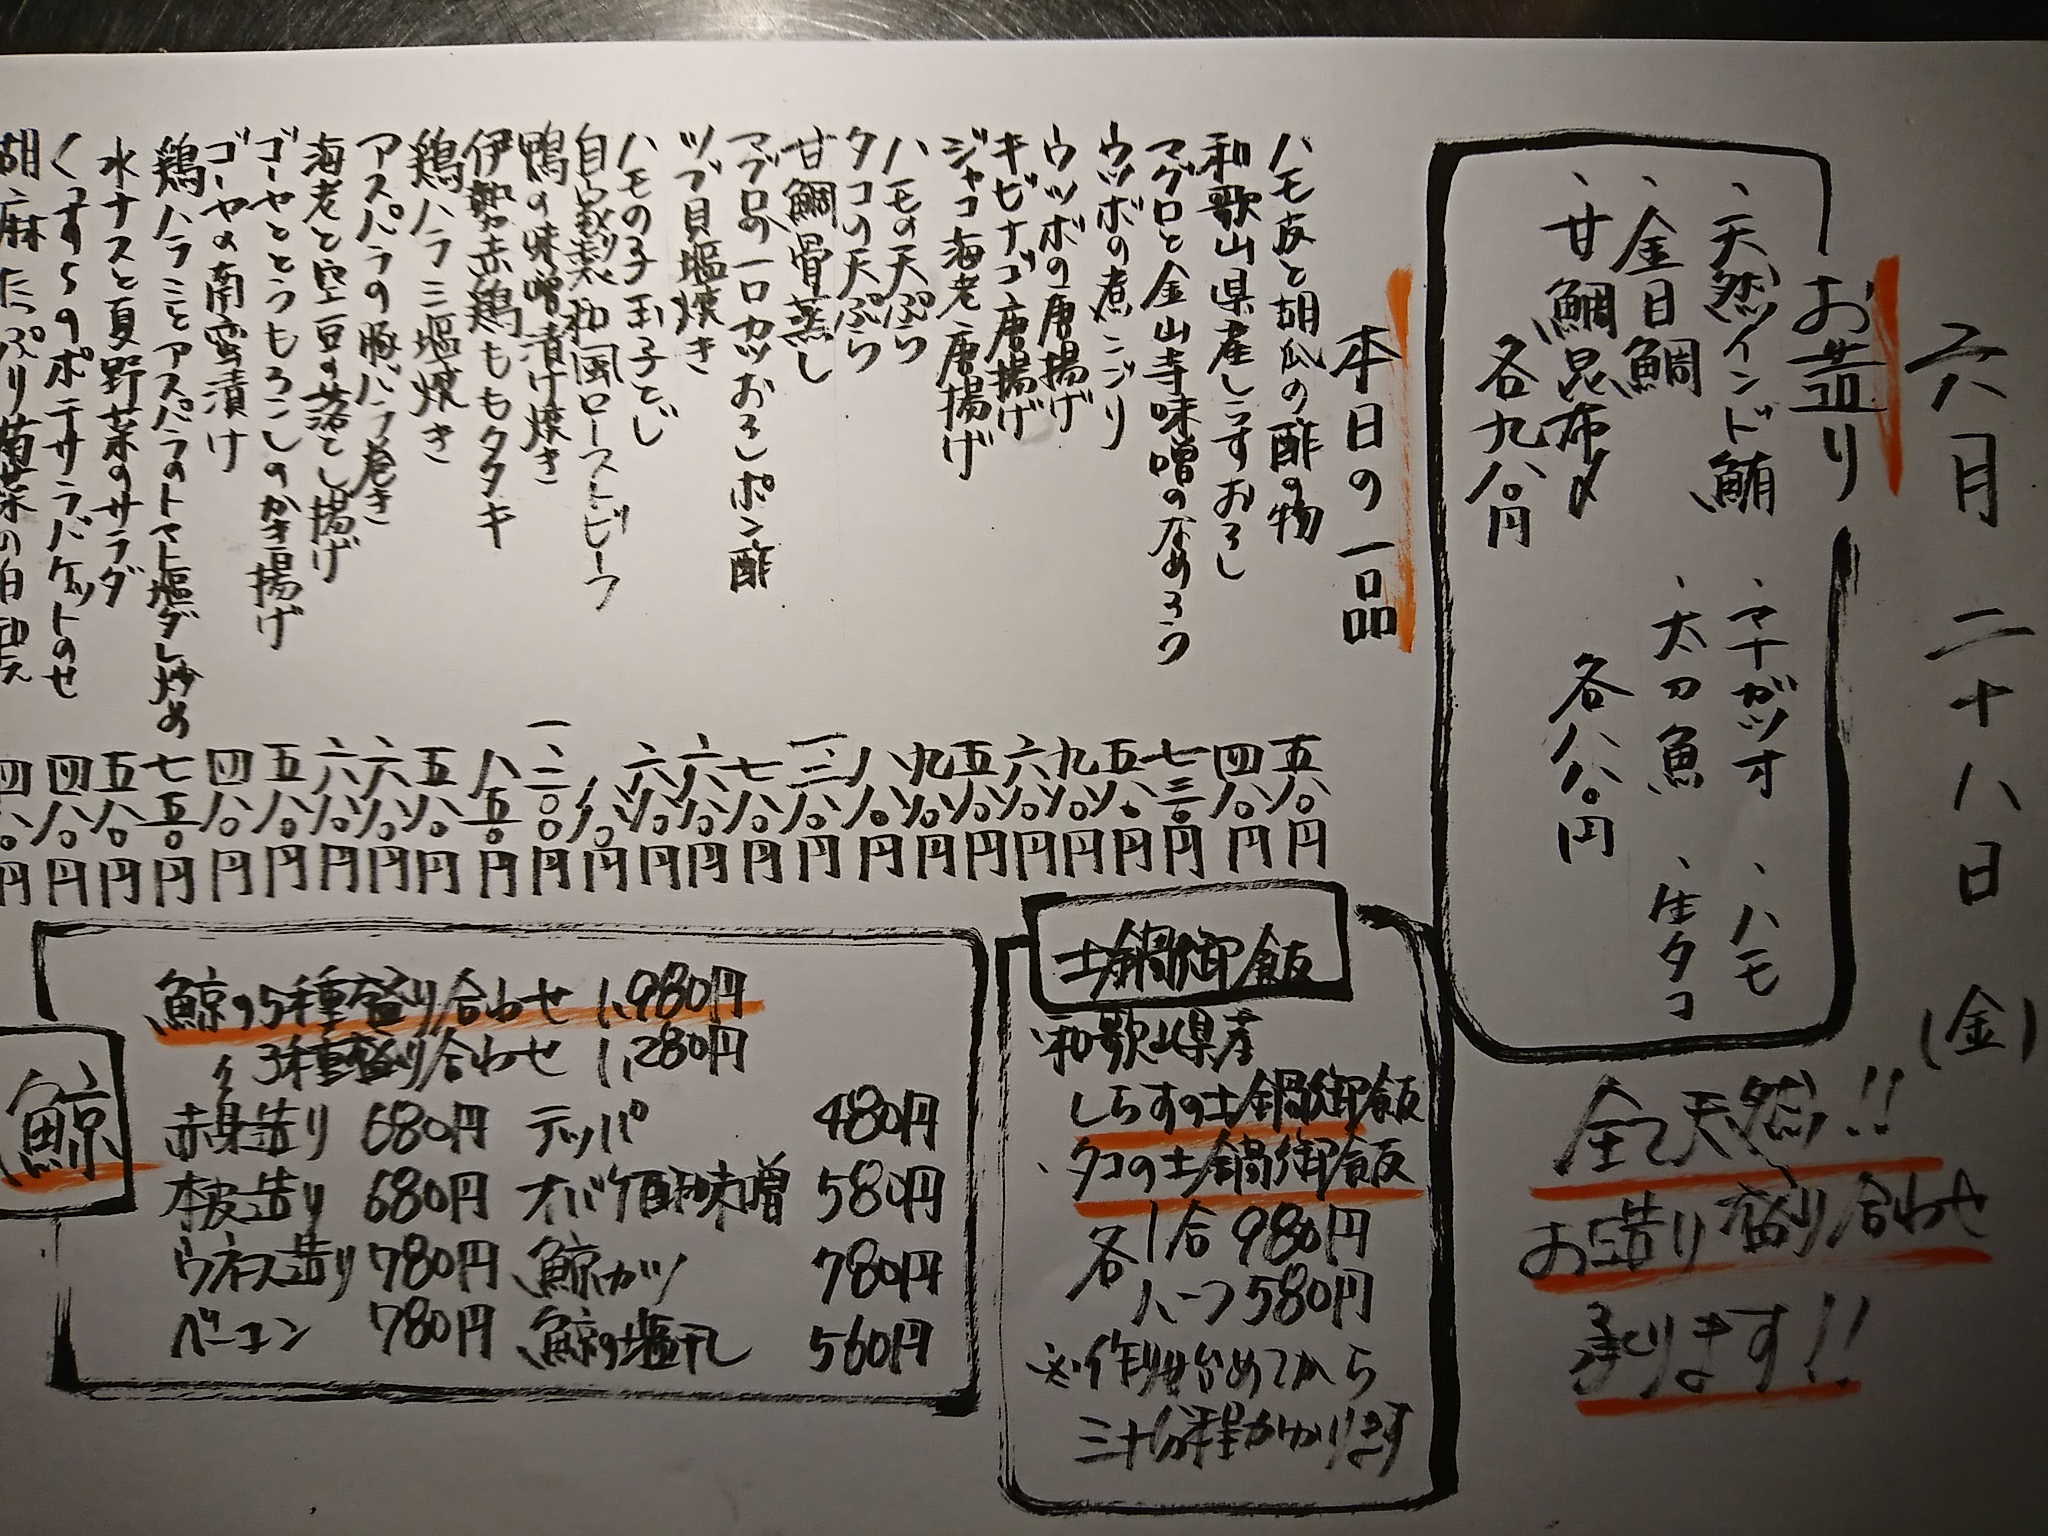 六月二十八日(金)
お造り
、天然インド鮪
、金目鯛
、甘鯛昆布〆
各九八〇円
、マナガツオ
、太刀魚
、ハモ
、生タコ
各八八〇円
全て天然!!
お造り盛り合わせ
承ります!!
本日の一品
ハモ皮と胡瓜の酢の物 五八〇円
和歌山県産しらすおろし 四八〇円
マグロと金山寺味噌のなめろう 七三〇円
ウツボの煮こごり 五八〇円
ウツボの唐揚げ 九八〇円
キビナゴ唐揚げ 六八〇円
ジャコ海老唐揚げ 五八〇円
ハモの天ぷら 九八〇円
タコの天ぷら 八八〇円
甘鯛骨蒸し
マグロの一口カツおろしポン酢 七八〇円
ツブ貝塩焼き 六八〇円
ハモの子玉子とじ 六八〇円
自家製和風ローストビーフ
鴨の味噌漬け焼き
伊勢赤鶏ももタタキ 八五〇円
鶏ハラミ塩焼き 五八〇円
アスパラの豚バラ巻き 六八〇円
海老と空豆の落とし揚げ 六八〇円
ゴーヤととうもろこしのかき揚げ 五八〇円
ゴーヤの南蛮漬け 四八〇円
鶏ハラミとアスパラのトマト塩ダレ炒め 七五〇円
水ナスと夏野菜のサラダ 五八〇円
くずし5のポテサラバケットのせ 四八〇円
胡麻たっぷり菊菜の白和え 四八〇円
土鍋御飯
、和歌山県産
しらすの土鍋御飯
、タコの土鍋御飯
各1合980円
ハーフ580円
※作り始めてから
三十分程かかります
鯨
鯨の5種盛り合わせ 1,980円
〃 3種盛り合わせ 1,280円
赤身造り 680円 テッパ 480円
本皮造り 680円 オバケ酢味噌 580円
ウネス造り 780円 鯨カツ 780円
ベーコン 780円 鯨の塩干し 560円